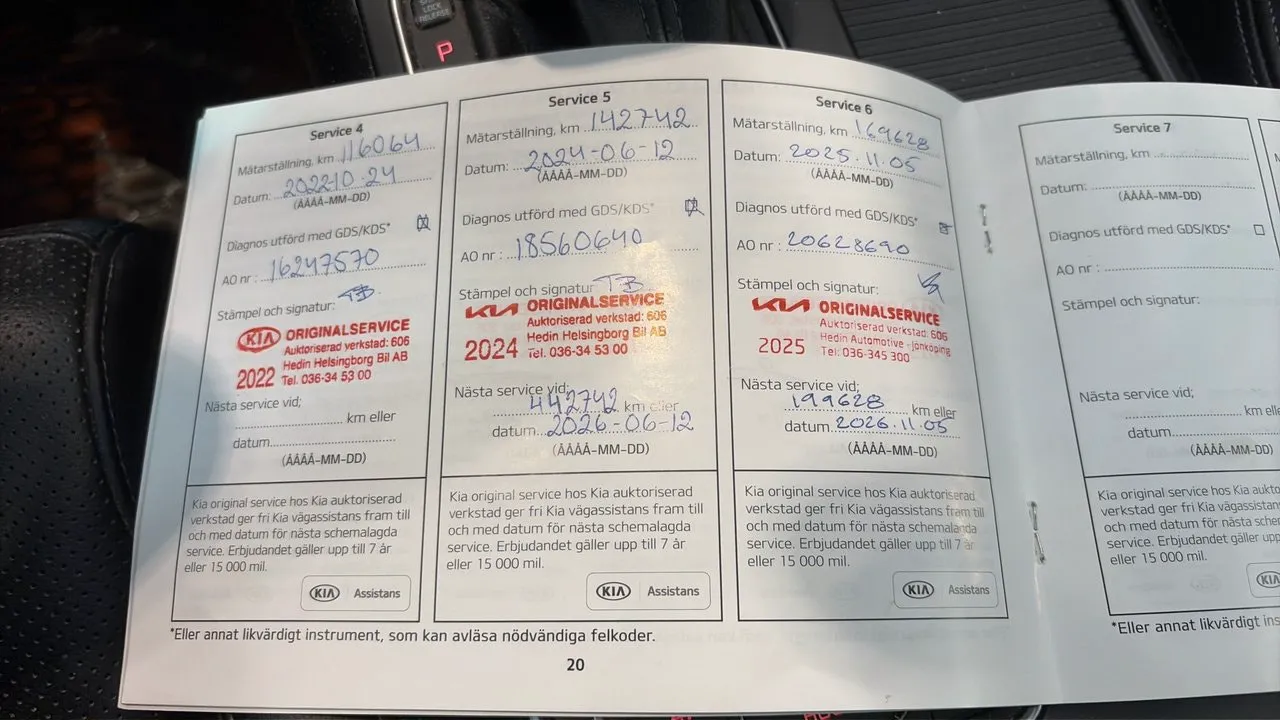 LOCK
RELEASE
P
Service 4
Mätarställning, km 116064
Datum: 2022-10-24
(ÅÅÅÅ-MM-DD)
Diagnos utförd med GDS/KDS*
AO nr : 16247570
Stämpel och signatur: TB
KIA ORIGINALSERVICE
Auktoriserad verkstad: 606
Hedin Helsingborg Bil AB
2022 Tel. 036-34 53 00
Nästa service vid;
km eller
datum
(ÅÅÅÅ-MM-DD)
Kia original service hos Kia auktoriserad
verkstad ger fri Kia vägassistans fram till
och med datum för nästa schemalagda
service. Erbjudandet gäller upp till 7 år
eller 15 000 mil.
KIA Assistans
Service 5
Mätarställning, km 142742
Datum: 2024-06-12
(ÅÅÅÅ-MM-DD)
Diagnos utförd med GDS/KDS*
AO nr : 18560640
Stämpel och signatur: TB
KIA ORIGINALSERVICE
Auktoriserad verkstad: 606
Hedin Helsingborg Bil AB
2024 Tel. 036-34 53 00
Nästa service vid;
442742 km eller
datum 2026-06-12
(ÅÅÅÅ-MM-DD)
Kia original service hos Kia auktoriserad
verkstad ger fri Kia vägassistans fram till
och med datum för nästa schemalagda
service. Erbjudandet gäller upp till 7 år
eller 15 000 mil.
KIA Assistans
Service 6
Mätarställning, km 169628
Datum: 2025.11.05
(ÅÅÅÅ-MM-DD)
Diagnos utförd med GDS/KDS*
AO nr : 20628690
Stämpel och signatur:
KIA ORIGINALSERVICE
Auktoriserad verkstad: 606
Hedin Automotive - Jönköping
2025 Tel: 036-345 300
Nästa service vid;
199628 km eller
datum 2026.11.05
(ÅÅÅÅ-MM-DD)
Kia original service hos Kia auktoriserad
verkstad ger fri Kia vägassistans fram till
och med datum för nästa schemalagda
service. Erbjudandet gäller upp till 7 år
eller 15 000 mil.
KIA Assistans
*Eller annat likvärdigt instrument, som kan avläsa nödvändiga felkoder.
20
Service 7
Mätarställning, km
Datum:
(ÅÅÅÅ-MM-DD)
Diagnos utförd med GDS/KDS*
AO nr :
Stämpel och signatur:
Nästa service vid;
km
datum
(ÅÅÅÅ-MM-DD)
Kia original service hos Kia
verkstad ger fri Kia vägassistans
och med datum för nästa
service. Erbjudandet gäller
eller 15 000 mil.
*Eller annat likvärdigt